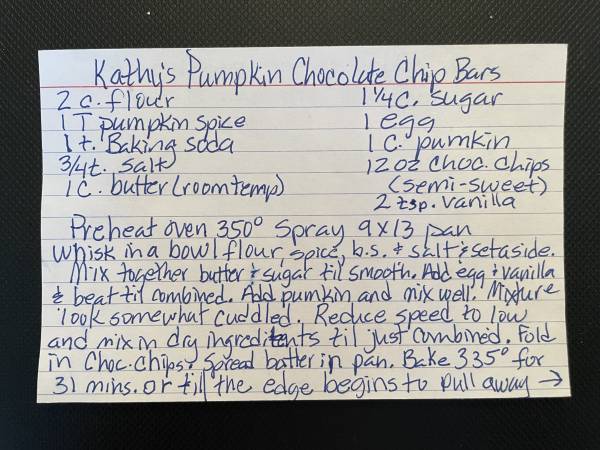 Kathy's Pumpkin Chocolate Chip Bars
2 c. flour
1 T pumpkin spice
1 t. Baking soda
3/4 t. salt
1 c. butter (room temp)
1 1/4 c. sugar
1 egg
1 c. pumkin
12 oz choc. chips
(semi-sweet)
2 tsp. vanilla
Preheat oven 350° spray 9x13 pan
Whisk in a bowl flour, spice, b.s. & salt & set aside.
Mix together butter & sugar til smooth. Add egg & vanilla
& beat til combined. Add pumpkin and mix well. Mixture
look somewhat cuddled. Reduce speed to low
and mix in dry ingreditents til just combined. Fold
in choc. chips & spread batter in pan. Bake 335° for
31 mins. or till the edge begins to pull away →